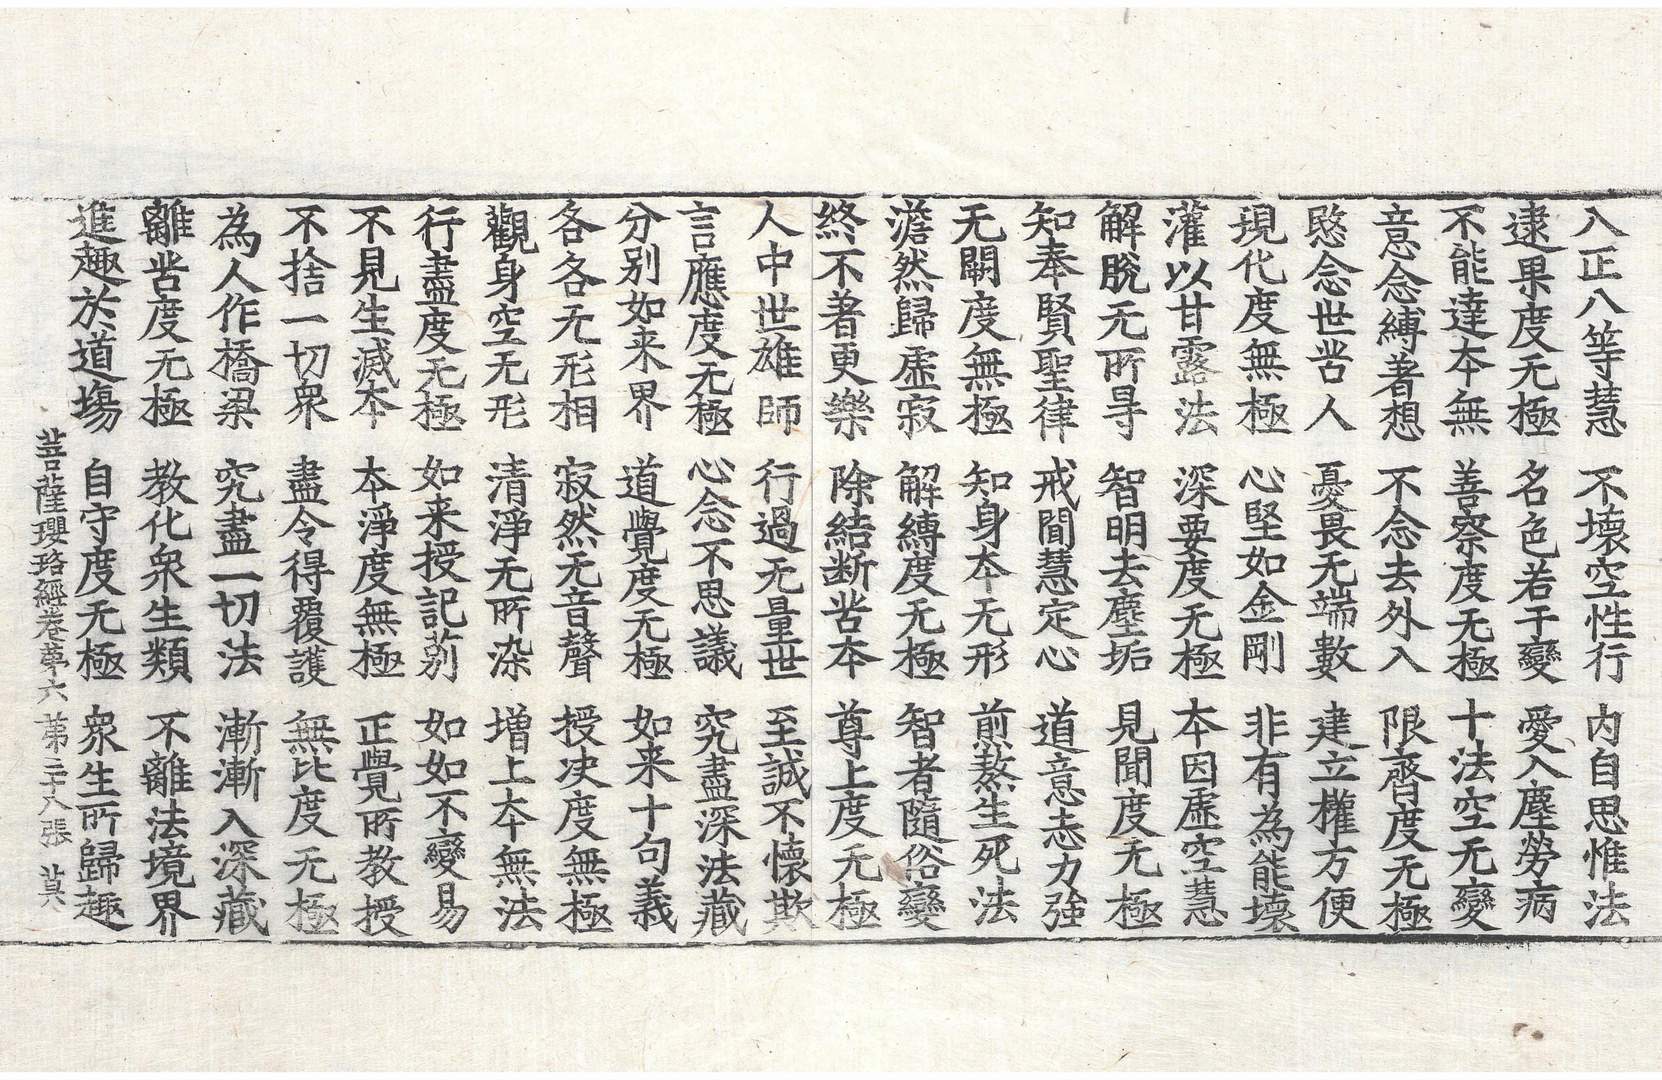 入正八等慧 不壞空性行 內自思惟法
逮果度无極 名色若干變 愛入塵勞病
不能達本無 善察度无極 十法空无變
意念縛著想 不念去外入 限齊度无極
愍念世苦人 憂畏无端數 建立權方便
現化度無極 心堅如金剛 非有為能壞
灌以甘露法 深要度无極 本因虛空慧
解脫无所㝵 智明去塵垢 見聞度无極
知奉賢聖律 戒聞慧定心 道意志力強
无闕度無極 知身本无形 煎熬生死法
澹然歸虛寂 解縛度无極 智者隨俗變
終不著更樂 除結断苦本 尊上度无極
人中世雄師 行過无量世 至誠不懷欺
言應度无極 心念不思議 究盡深法藏
分別如来界 道覺度无極 如来十句義
各各无形相 寂然无音聲 授决度無極
觀身空无形 清淨无所染 增上本無法
行盡度无極 如来授記莂 如如不變易
不見生滅本 本淨度無極 正覺所教授
不捨一切衆 盡令得覆護 無比度无極
為人作橋梁 究盡一切法 漸漸入深藏
離苦度无極 教化衆生類 不離法境界
進趣於道場 自守度无極 衆生所歸趣
菩薩瓔珞經卷苐六 苐二十八張 莫